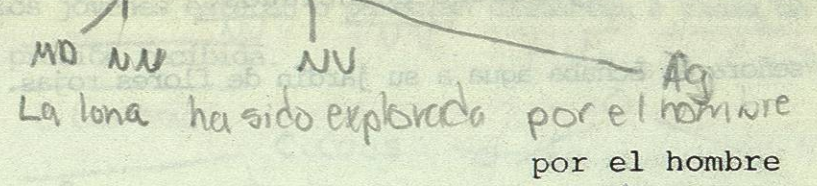 MD NN NV Ag
La lona ha sido explorada por el hombre
por el hombre